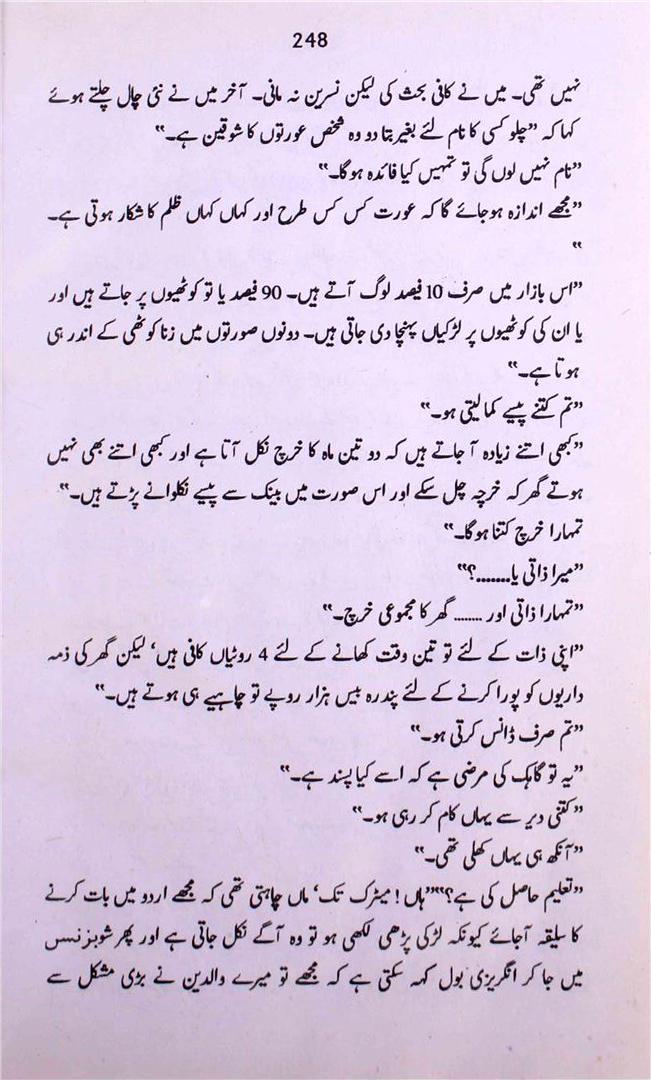 248
نہیں تھی۔ میں نے کافی بحث کی لیکن نسرین نہ مانی۔ آخر میں نے نئی چال چلتے ہوئے
کہا کہ ”چلو کسی کا نام لئے بغیر بتا دو وہ شخص عورتوں کا شوقین ہے۔“
”نام نہیں لوں گی تو تمہیں کیا فائدہ ہوگا۔“
”مجھے اندازہ ہوجائے گا کہ عورت کس کس طرح اور کہاں کہاں ظلم کا شکار ہوتی ہے۔
“
”اس بازار میں صرف 10 فیصد لوگ آتے ہیں۔ 90 فیصد یا تو کوٹھیوں پر جاتے ہیں اور
یا ان کی کوٹھیوں پر لڑکیاں پہنچا دی جاتی ہیں۔ دونوں صورتوں میں زنا کوٹھی کے اندر ہی
ہوتا ہے۔“
”تم کتنے پیسے کما لیتی ہو۔“
”کبھی اتنے زیادہ آ جاتے ہیں کہ دو تین ماہ کا خرچ نکل آتا ہے اور کبھی اتنے بھی نہیں
ہوتے گھر کہ خرچہ چل سکے اور اس صورت میں بینک سے پیسے نکلوانے پڑتے ہیں۔“
تمہارا خرچ کتنا ہوگا۔“
”میرا ذاتی یا.......؟“
”تمہارا ذاتی اور ....... گھر کا مجموعی خرچ۔“
”اپنی ذات کے لئے تو تین وقت کھانے کے لئے 4 روٹیاں کافی ہیں‘ لیکن گھر کی ذمہ
داریوں کو پورا کرنے کے لئے پندرہ بیس ہزار روپے تو چاہیے ہی ہوتے ہیں۔“
”تم صرف ڈانس کرتی ہو۔“
”یہ تو گاہک کی مرضی ہے کہ اسے کیا پسند ہے۔“
”کتنی دیر سے یہاں کام کر رہی ہو۔“
”آنکھ ہی یہاں کھلی تھی۔“
”تعلیم حاصل کی ہے؟“”ہاں! میٹرک تک‘ ماں چاہتی تھی کہ مجھے اردو میں بات کرنے
کا سلیقہ آجائے کیونکہ لڑکی پڑھی لکھی ہو تو وہ آگے نکل جاتی ہے اور پھر شوبزنس
میں جا کر انگریزی بول کہہ سکتی ہے کہ مجھے تو میرے والدین نے بڑی مشکل سے